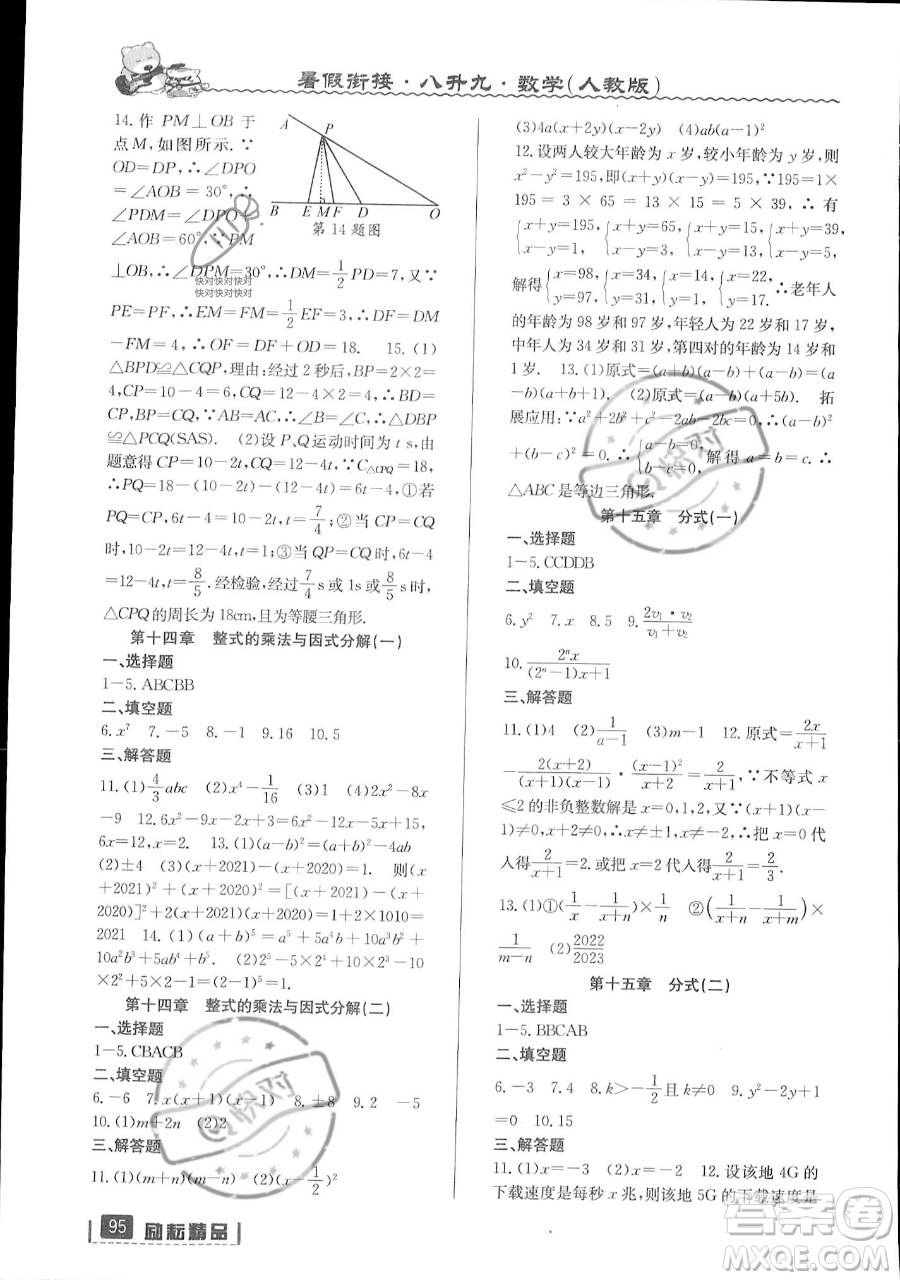 暑假衔接·八升九·数学(人教版)
14.作 PM⊥OB 于
点M,如图所示.∵
OD=DP,∴∠DPO
=∠AOB=30°,∴
∠PDM=∠DPO+
∠AOB=60°.∵PM
A
P
B
E
M
F
D
O
第14题图
⊥OB,∴∠DPM=30°,∴DM=1/2PD=7,又∵
PE=PF,∴MF=1/2EF=3,∴DF=DM
-FM=4,∴OF=DF+OD=18. 15.(1)
△BPD≌△CQP,理由:经过2秒后,BP=2×2=
4,CP=10-4=6,CQ=2×2=4,BD=10-6
=4,∴CQ=BP,∵AB=AC,∴∠B=∠C,∴△DBP
≌△PCQ(SAS). (2)设P、Q运动时间为t s,由
题意得CP=10-2t,CQ=12-4t,∵C△CPQ=18,
∴PQ=18-(10-2t)-(12-4t)=6t-4,①若
PQ=CP,6t-4=10-2t,t=7/4;②当CP=CQ
时,10-2t=12-4t,t=1;③当QP=CQ时,6t-4
=12-4t,t=8/5.经检验,当t=7/4s或1s或8/5s时,
△CPQ的周长为18cm,且为等腰三角形.
第十四章 整式的乘法与因式分解(一)
一、选择题
1-5. ABCBB
二、填空题
6.x⁷ 7.-5 8.-1 9.16 10.5
三、解答题
11.(1)4/3abc (2)x⁴-1/16 (3)4x² (4)2x²-8x
-9 12.6x²-9x+2x-3-6x²+30x-x+5=6x-
6x=12,x=2. 13.(1)(a-b)²=(a+b)²-4ab
(2)±4 (3)(x+2021)-(x+2020)=1. 则(x+
2021)²+(x+2020)²=[(x+2021)-(x+
2020)]²+2(x+2021)(x+2020)=1+2×1010=
2021 14.(1)(a+b)⁵=a⁵+5a⁴b+10a³b²+
10a²b³+5ab⁴+b⁵ (2)2⁵-5×2⁴+10×2³-10
×2²+5×2-1=(2-1)⁵=1.
第十四章 整式的乘法与因式分解(二)
一、选择题
1-5. CBACB
二、填空题
6.-6 7.x(x+1)(x-1) 8.±8 9.2 -5
10.(1)m+2n (2)(a+2b)(a+b)
三、解答题
11.(1)(m+n)(m-n) (2)(x-1/2)²
(3)4a(x+2y)(x-2y) (4)ab(a-1)²
12.设两人较大年龄为x岁,较小年龄为y岁,则
x²-y²=195,即(x+y)(x-y)=195,∵195=1×
195 = 3 × 65 = 13 × 15 = 5 × 39, ∴ 有
{x+y=195, x-y=1, {x+y=65, x-y=3, {x+y=15, x-y=13, {x+y=39, x-y=5.
解得{x=98, y=97, {x=34, y=31, {x=14, y=1, {x=22, y=17. ∴老年人
的年龄为98岁和97岁,年轻人为22岁和17岁,
中年人为34岁和31岁,第四对的年龄为14岁和
1岁. 13.(1)原式=(a+b)(a-b)+(a-b)=(a
-b)(a+b+1). (2)原式=(a-b)(a+5b). 拓
展应用:∵a²+2b²+c²-2ab-2bc=0,∴(a-b)²
+(b-c)²=0,∴{a-b=0, b-c=0, 解得a=b=c.∴
△ABC是等边三角形.
第十五章 分式(一)
一、选择题
1-5. CCDDB
二、填空题
6.y² 7.x 8.5 9.2v₁·v₂/(v₁+v₂)
10.2ⁿx/((2ⁿ-1)x+1)
三、解答题
11.(1)4 (2)1/(a-1) (3)m-1 12.原式=2x/(x+1)
-2(x+3)/((x+1)(x-1))·(x-1)²/(x+3)=2/(x+1),∵不等式x
≤2的非负整数解是x=0,1,2,又∵(x+1)(x-
1)≠0,x+3≠0,∴x≠±1,x≠-3,∴把x=0代
入得2/(x+1)=2.或把x=2代入得2/(x+1)=2/3.
13.(1)①(1/x-1/(x+n))×1/n ②(1/(x+n)-1/(x+m))×
1/(m-n) (2)2022/2023
第十五章 分式(二)
一、选择题
1-5. BBCAB
二、填空题
6.-3 7.4 8.k>-1/2且k≠0 9.y²-2y+1
=0 10.15
三、解答题
11.(1)x=-3 (2)x=-3 12.设该地4G的
下载速度是每秒x兆,则该地5G的下载速度是
95 励耘精品
快对快对快对
快对快对快对
快对
快对
快对
答案圈
MXQE.COM